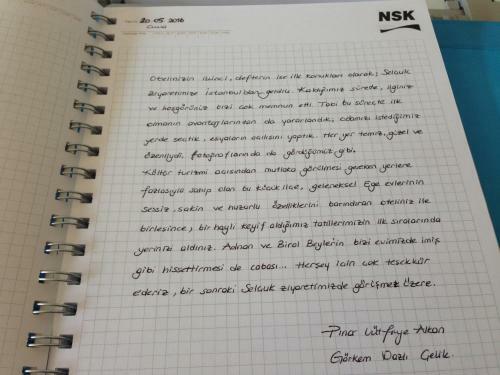 20.05.2016
Cuma
NSK
Otelinizin ikinci, defterin ise ilk konukları olarak; Selçuk
ziyaretimize İstanbul'dan geldik. Kaldığımız sürede, ilginiz
ve hoşgörünüz bizi çok memnun etti. Tabi bu süreçte ilk
olmanın avantajlarından da yararlandık; odamızı istediğimiz
yerde seçtik, eşyaların açılışını yaptık. Her yer temiz, güzel ve
özenliydi. Fotoğraflarında da gördüğümüz gibi.
Kültür turizmi açısından mutlaka görülmesi gereken yerlere
fazlasıyla sahip olan bu küçük ilçe, geleneksel Ege evlerinin
sessiz, sakin ve huzurlu özelliklerini barındıran oteliniz ile
birleşince, bir hayli keyif aldığımız tatillerimizin ilk sıralarında
yerinizi aldınız. Adnan ve Birol Beylerin bizi evimizde imiş
gibi hissettirmesi de cabası... Herşey için çok teşekkür
ederiz, bir sonraki Selçuk ziyaretimizde görüşmek üzere.
Pınar Lütfiye Alkan
Görkem Çelik.